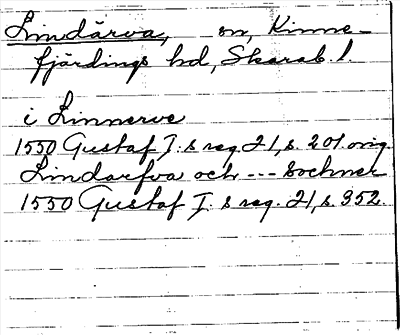 Lindärva, sn, Kinne-
fjärdings hd, Skarab. l.
i Linnerve
1550 Gustaf I:s reg. 21, s. 201. orig.
Lindarfva och --- sochner
1550 Gustaf I:s reg. 21, s. 352.